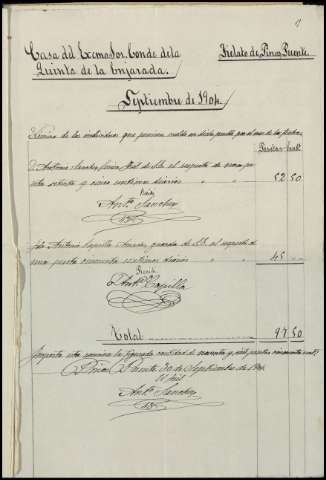 Casa del Excmo Sor. Conde de la
Quinta de la Enjarada.
Fielato de Pinos Puente
Septiembre de 1904.
Nómina de los individuos que prestan servicio en dicho puesto por el mes de la fecha.
Pesetas Cents
D. Antonio Sanchez Fiel de Id. al respecto de una pe
seta setenta y cinco centimos diarios " " 52,50
Recibí
Antº Sanchez
Antonio Capilla guarda de Id. al respecto de
una peseta cincuenta centimos diarios " " 45 "
Recibí
Antº Capilla
Total 97,50
Importa esta nomina la figurada cantidad de noventa y siete pesetas cincuenta cents.
Pinos Puente 30 de Septiembre de 1904
El Fiel
Antº Sanchez